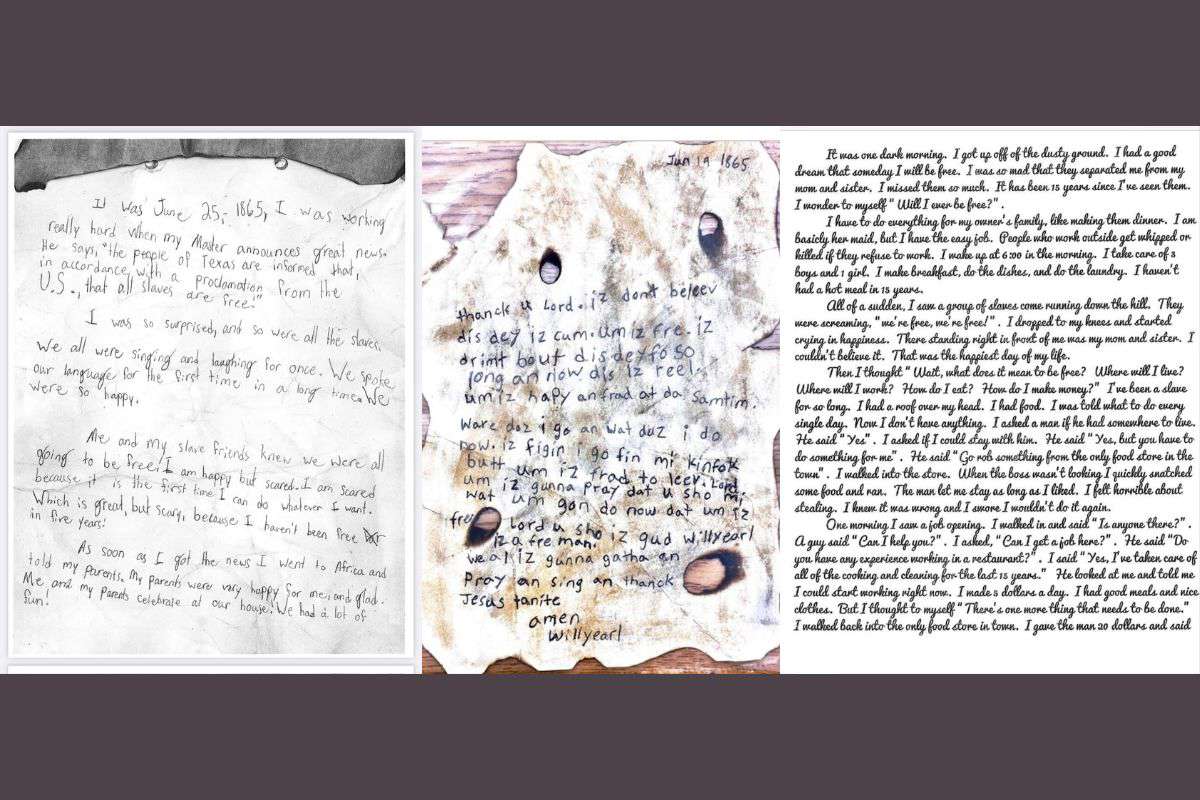 It was June 25, 1865, I was working
really hard when my Master announces great news.
He says, "the people of Texas are informed that,
in accordance with a proclamation from the
U.S., that all slaves are free."
I was so surprised, and so were all the slaves.
We all were singing and laughing for once. We spoke
our language for the first time in a long time. We
were so happy.
Me and my slave friends knew we were all
going to be free. I am happy but scared. I am scared
because it is the first time I can do whatever I want.
Which is great, but scary, because I haven't been free
in five years!
As soon as I got the news I went to Africa and
told my parents. My parents were very happy for me, and glad.
Me and my parents celebrate at our house. We had a lot of
fun!
Jun 19 1865
thanck u Lord. iz dont beleev
dis dey iz cum. um iz fre. iz
drimt bout dis dey fo so
long an now dis iz reel.
um iz hapy an frad at da samtim.
ware doz i go an wat duz i do
now. iz figin i go fin mi kinfolk
butt um iz frad to leev. Lord
um iz gunna pray dat u sho mi
wat um gon do now dat um iz
free
Lord u sho iz gud willyearl
iz a fre man.
we al iz gunna gatha an
pray an sing an thanck
Jesus tanite
amen
willyearl
It was one dark morning. I got up off of the dusty ground. I had a good
dream that someday I will be free. I was so mad that they separated me from my
mom and sister. I missed them so much. It has been 15 years since I've seen them.
I wonder to myself " Will I ever be free?" .
I have to do everything for my owner's family, like making them dinner. I am
basicly her maid, but I have the easy job. People who work outside get whipped or
killed if they refuse to work. I wake up at 6:00 in the morning. I take care of 3
boys and 1 girl. I make breakfast, do the dishes, and do the laundry. I haven't
had a hot meal in 15 years.
All of a sudden, I saw a group of slaves come running down the hill. They
were screaming, "we're free, we're free!" . I dropped to my knees and started
crying in happiness. There standing right in front of me was my mom and sister. I
couldn't believe it. That was the happiest day of my life.
Then I thought " Wait, what does it mean to be free? Where will I live?
Where will I work? How do I eat? How do I make money?" I've been a slave
for so long. I had a roof over my head. I had food. I was told what to do every
single day. Now I don't have anything. I asked a man if he had somewhere to live.
He said " Yes" . I asked if I could stay with him. He said " Yes, but you have to
do something for me" . He said "Go rob something from the only food store in the
town" . I walked into the store. When the boss wasn't looking I quickly snatched
some food and ran. The man let me stay as long as I liked. I felt horrible about
stealing. I knew it was wrong and I swore I wouldn't do it again.
One morning I saw a job opening. I walked in and said "Is anyone there?" .
A guy said "Can I help you?" . I asked, "Can I get a job here?" . He said "Do
you have any experience working in a restaurant?" . I said " Yes, I've taken care of
all of the cooking and cleaning for the last 15 years." He looked at me and told me
I could start working right now. I made 5 dollars a day. I had good meals and nice
clothes. But I thought to myself " There's one more thing that needs to be done."
I walked back into the only food store in town. I gave the man 20 dollars and said